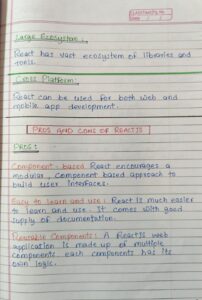 Large Ecosystem :
React has vast ecosystem of libraries and
tools.
Cross Platform:
React can be used for both web and
mobile app development.
PROS AND CONS OF REACTJS
PROS :
Component-based React encourages a
modular, component based approach to
build user interfaces.
Easy to learn and use: React is much easier
to learn and use. It comes with good
supply of documentation.
Reusable Components: A ReactJS web
application is made up of multiple
components, each components has its
own logic.